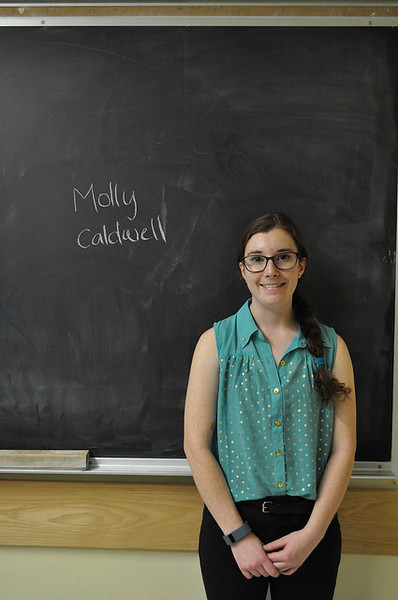 Molly
Caldwell